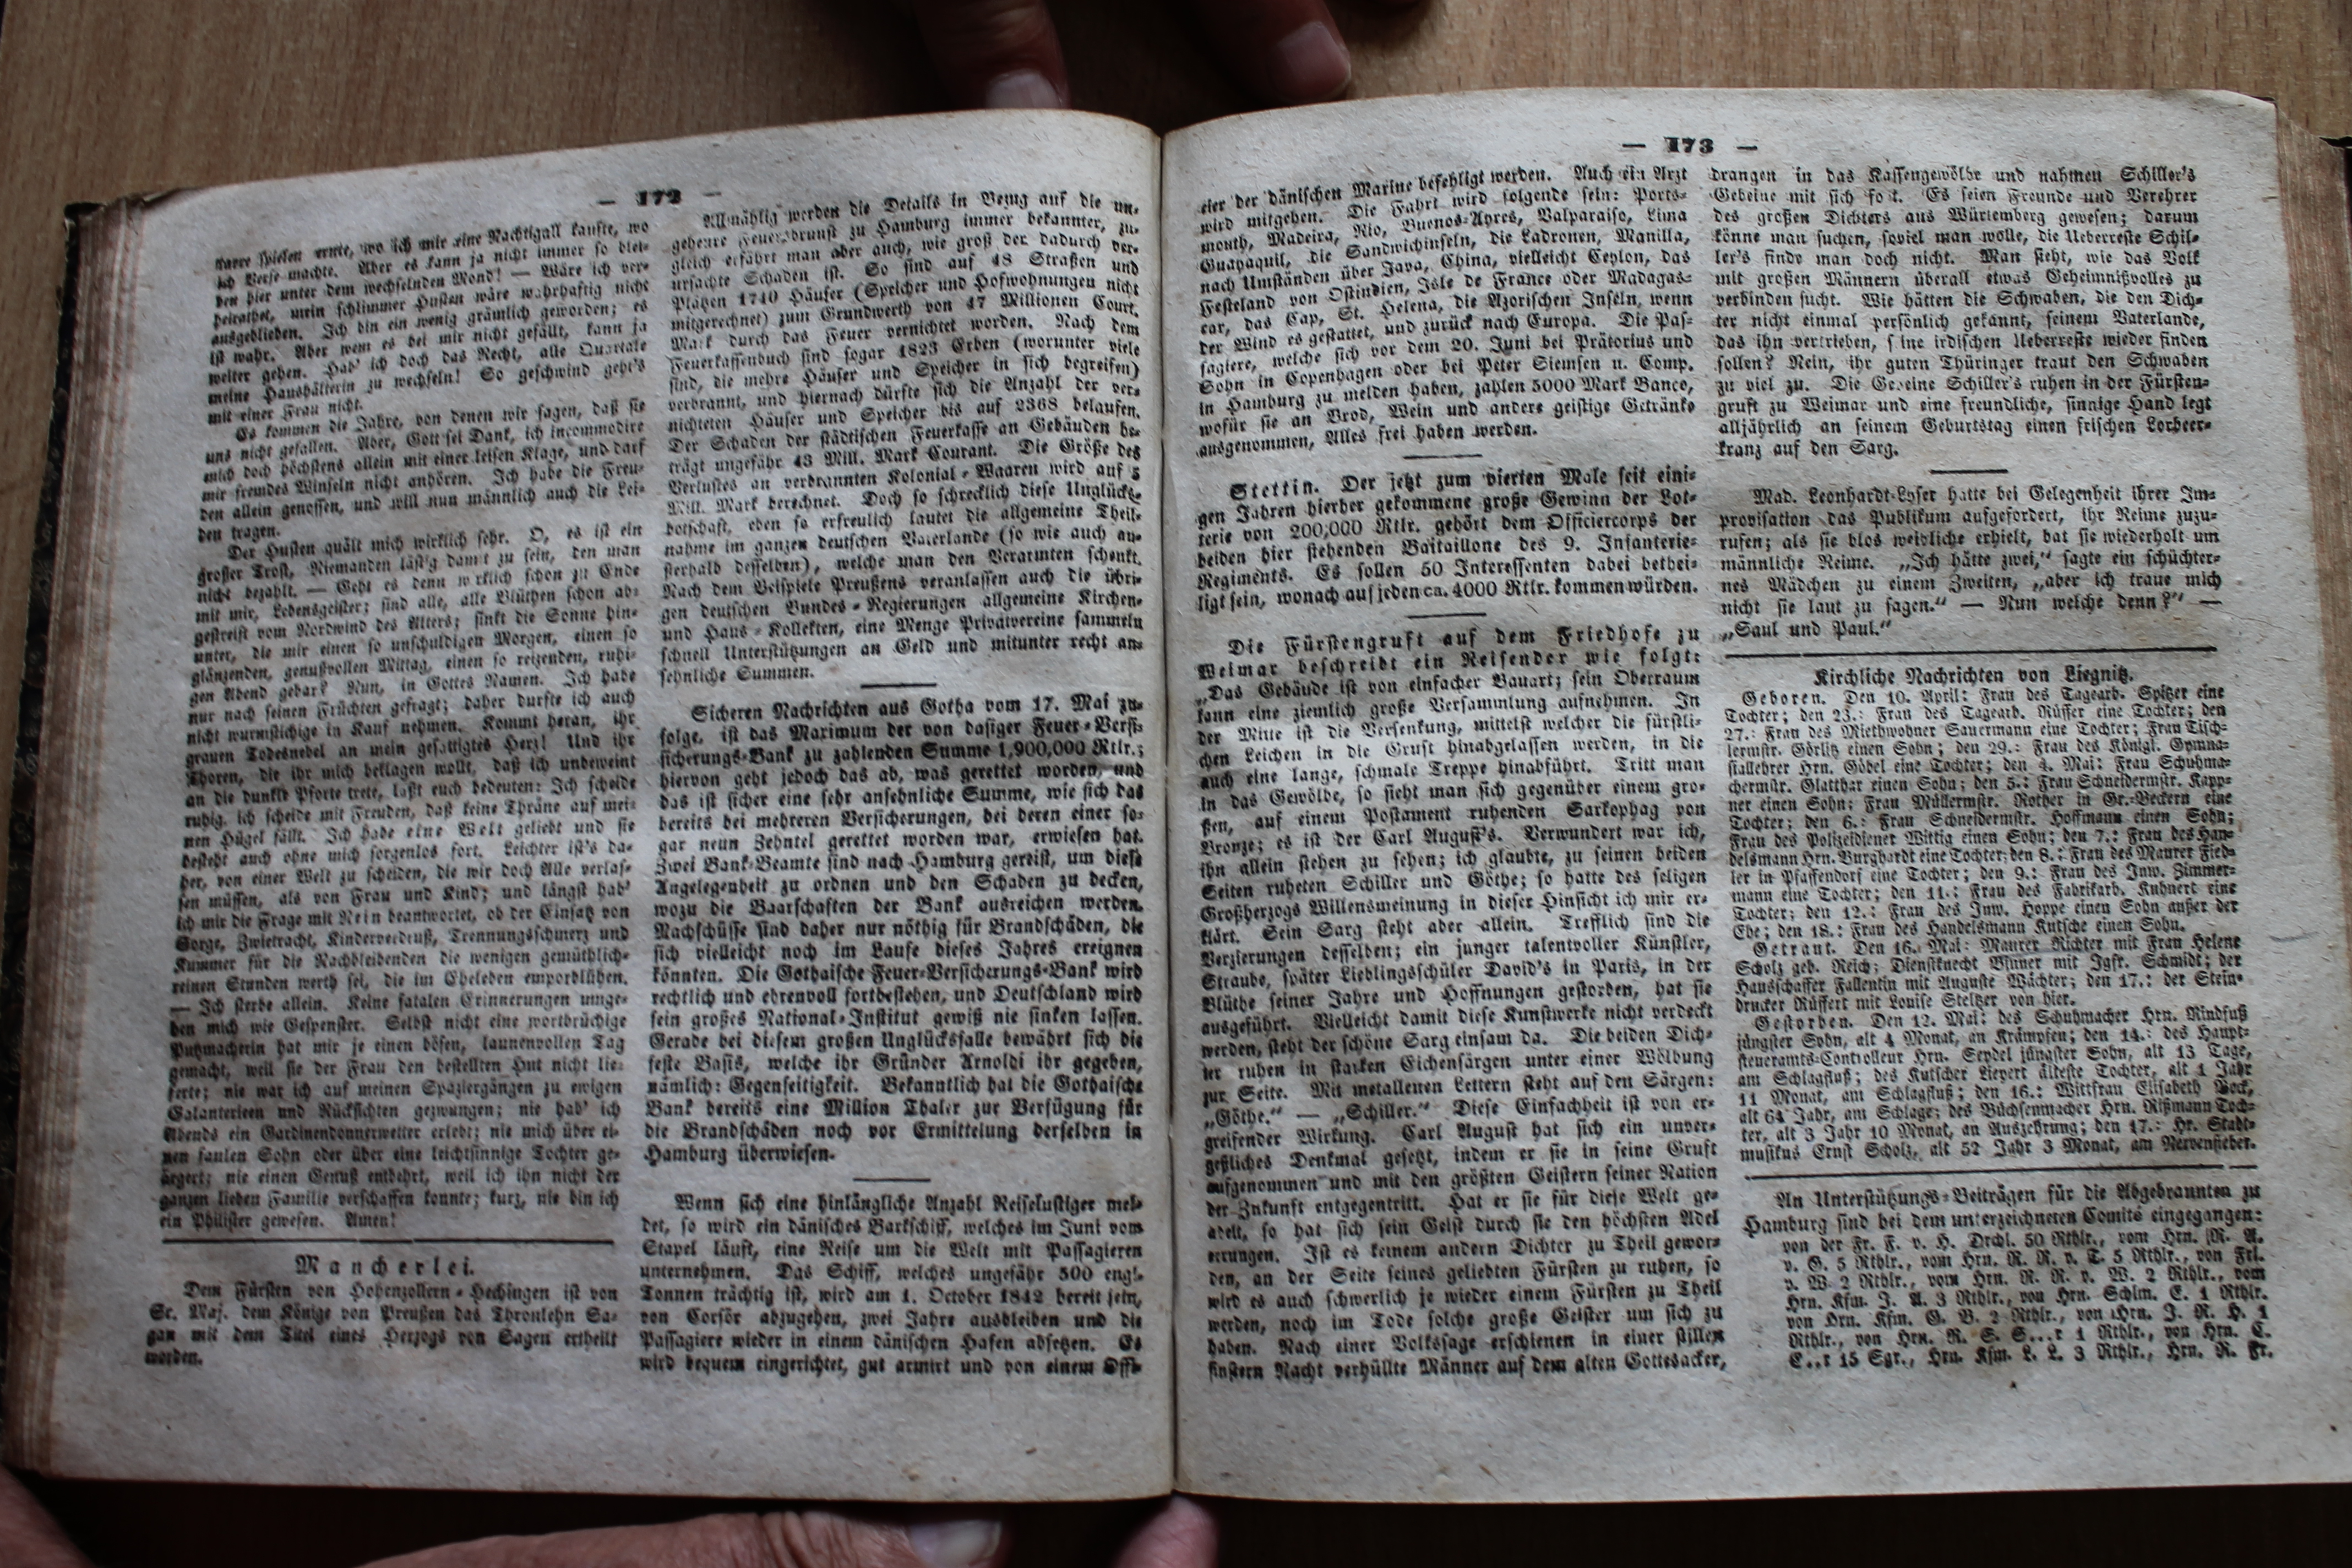 — 172 —
ich Verse machte. Aber es kann ja nicht immer so blei-
ben hier unter dem wechselnden Mond! — Wäre ich ver-
heirathet, mein schlimmer Husten wäre wahrhaftig nicht
ausgeblieben. Ich bin ein wenig grämlich geworden; es
ist wahr. Aber wem es bei mir nicht gefällt, kann ja
weiter gehen. Hab' ich doch das Recht, alle Quartale
meine Haushälterin zu wechseln! So geschwind geht's
mit einer Frau nicht.
Es kommen die Jahre, von denen wir sagen, daß sie
uns nicht gefallen. Aber, Gott sei Dank, ich incommodire
mich doch höchstens allein mit einer leisen Klage, und darf
mir fremdes Winseln nicht anhören. Ich habe die Freu-
den allein genossen, und will nun männlich auch die Lei-
den tragen.
Der Husten quält mich wirklich sehr. O, es ist ein
großer Trost, Niemanden lästig damit zu sein, den man
nicht bezahlt. — Geht es denn wirklich schon zu Ende
mit mir, Lebensgeister; sind alle, alle Blüthen schon ab-
gestreift vom Nordwind des Alters; sinkt die Sonne hin-
unter, die mir einen so unschuldigen Morgen, einen so
glänzenden, genußvollen Mittag, einen so reizenden, ruhi-
gen Abend gebar? Nun, in Gottes Namen. Ich habe
nur nach seinen Früchten gefragt; daher durfte ich auch
nicht wurmstichige in Kauf nehmen. Kommt heran, ihr
grauen Todesnebel an mein gesättigtes Herz! Und ihr
Thoren, die ihr mich beklagen wollt, daß ich unbeweint
an die dunkle Pforte trete, laßt euch bedeuten: Ich scheide
ruhig, ich scheide mit Freuden, daß keine Thräne auf mei-
nen Hügel fällt. Ich habe eine Welt geliebt und sie
besteht auch ohne mich sorgenlos fort. Leichter ist's da-
her, von einer Welt zu scheiden, die wir doch Alle verlas-
sen müssen, als von Frau und Kind; und längst hab'
ich mir die Frage mit Nein beantwortet, ob der Einsatz von
Sorge, Zwietracht, Kinderverdruß, Trennungsschmerz und
Kummer für die Nachbleibenden die wenigen gemüthlich-
reinen Stunden werth sei, die im Eheleben emporblühen.
— Ich sterbe allein. Keine fatalen Erinnerungen umge-
ben mich wie Gespenster. Selbst nicht eine wortbrüchige
Putzmacherin hat mir je einen bösen, launenvollen Tag
gemacht, weil sie der Frau den bestellten Hut nicht lie-
ferte; nie war ich auf meinen Spaziergängen zu ewigen
Galanterieen und Rücksichten gezwungen; nie hab' ich
Abends ein Gardinendonnerwetter erlebt; nie mich über ei-
nen faulen Sohn oder über eine leichtsinnige Tochter ge-
ärgert; nie einen Genuß entbehrt, weil ich ihn nicht der
ganzen lieben Familie verschaffen konnte; kurz, nie bin ich
ein Philister gewesen. Amen!
Mancherlei.
Dem Fürsten von Hohenzollern-Hechingen ist von
Sr. Maj. dem Könige von Preußen das Thronlehn Sa-
gan mit dem Titel eines Herzogs von Sagen ertheilt
worden.
Allmählig werden die Details in Bezug auf die un-
geheure Feuersbrunst zu Hamburg immer bekannter, zu-
gleich erfährt man aber auch, wie groß der dadurch ver-
ursachte Schaden ist. So sind auf 48 Straßen und
Plätzen 1740 Häuser (Speicher und Hofwohnungen nicht
mitgerechnet) zum Grundwerth von 47 Millionen Court.
Mark durch das Feuer vernichtet worden. Nach dem
Feuerkassenbuch sind sogar 1823 Erben (worunter viele
sind, die mehre Häuser und Speicher in sich begreifen)
verbrannt, und hiernach dürfte sich die Anzahl der ver-
nichteten Häuser und Speicher bis auf 2368 belaufen.
Der Schaden der städtischen Feuerkasse an Gebäuden be-
trägt ungefähr 43 Mill. Mark Courant. Die Größe des
Verlustes an verbrannten Kolonial-Waaren wird auf 5
Mill. Mark berechnet. Doch so schrecklich diese Unglücks-
botschaft, eben so erfreulich lautet die allgemeine Theil-
nahme im ganzen deutschen Vaterlande (so wie auch au-
ßerhalb desselben), welche man den Verarmten schenkt.
Nach dem Beispiele Preußens veranlassen auch die übri-
gen deutschen Bundes-Regierungen allgemeine Kirchen-
und Haus-Kollekten, eine Menge Privatvereine sammeln
schnell Unterstützungen an Geld und mitunter recht an-
sehnliche Summen.
Sicheren Nachrichten aus Gotha vom 17. Mai zu-
folge, ist das Maximum der von dasiger Feuer-Versi-
sicherungs-Bank zu zahlenden Summe 1,900,000 Rtlr.;
hiervon geht jedoch das ab, was gerettet worden, und
das ist sicher eine sehr ansehnliche Summe, wie sich das
bereits bei mehreren Versicherungen, bei deren einer so-
gar neun Zehntel gerettet worden war, erwiesen hat.
Zwei Bank-Beamte sind nach Hamburg gereist, um diese
Angelegenheit zu ordnen und den Schaden zu decken,
wozu die Baarschaften der Bank ausreichen werden.
Nachschüsse sind daher nur nöthig für Brandschäden, die
sich vielleicht noch im Laufe dieses Jahres ereignen
könnten. Die Gothaische Feuer-Versicherungs-Bank wird
rechtlich und ehrenvoll fortbestehen, und Deutschland wird
sein großes National-Institut gewiß nie sinken lassen.
Gerade bei diesem großen Unglücksfalle bewährt sich die
feste Basis, welche ihr Gründer Arnoldi ihr gegeben,
nämlich: Gegenseitigkeit. Bekanntlich hat die Gothaische
Bank bereits eine Million Thaler zur Verfügung für
die Brandschäden noch vor Ermittelung derselben in
Hamburg überwiesen.
Wenn sich eine hinlängliche Anzahl Reiselustiger mel-
det, so wird ein dänisches Barkschiff, welches im Juni vom
Stapel läuft, eine Reise um die Welt mit Passagieren
unternehmen. Das Schiff, welches ungefähr 500 engl.
Tonnen trächtig ist, wird am 1. October 1842 bereit sein,
von Corsör abzugehen, zwei Jahre ausbleiben und die
Passagiere wieder in einem dänischen Hafen absetzen. Es
wird bequem eingerichtet, gut armirt und von einem Offi-
— 173 —
cier der dänischen Marine befehligt werden. Auch ein Arzt
wird mitgehen. Die Fahrt wird folgende sein: Ports-
mouth, Madeira, Rio, Buenos-Ayres, Valparaiso, Lima
Guayaquil, die Sandwichinseln, die Ladronen, Manilla,
nach Umständen über Java, China, vielleicht Ceylon, das
Festeland von Ostindien, Isle de France oder Madagas-
car, das Cap, St. Helena, die Azorischen Inseln, wenn
der Wind es gestattet, und zurück nach Europa. Die Pas-
sagiere, welche sich vor dem 20. Juni bei Prätorius und
Sohn in Copenhagen oder bei Peter Siemsen u. Comp.
in Hamburg zu melden haben, zahlen 5000 Mark Banco,
wofür sie an Brod, Wein und andere geistige Getränke
ausgenommen, Alles frei haben werden.
Stettin. Der jetzt zum vierten Male seit eini-
gen Jahren hierher gekommene große Gewinn der Lot-
terie von 200,000 Rtlr. gehört dem Officiercorps der
beiden hier stehenden Bataillone des 9. Infanterie-
Regiments. Es sollen 50 Interessenten dabei bethei-
ligt sein, wonach auf jeden ca. 4000 Rtlr. kommen würden.
Die Fürstengruft auf dem Friedhofe zu
Weimar beschreibt ein Reisender wie folgt:
„Das Gebäude ist von einfacher Bauart; sein Oberraum
kann eine ziemlich große Versammlung aufnehmen. In
der Mitte ist die Versenkung, mittelst welcher die fürstli-
chen Leichen in die Gruft hinabgelassen werden, in die
auch eine lange, schmale Treppe hinabführt. Tritt man
in das Gewölbe, so sieht man sich gegenüber einem gro-
ßen, auf einem Postament ruhenden Sarkophag von
Bronze; es ist der Carl August's. Verwundert war ich,
ihn allein stehen zu sehen; ich glaubte, zu seinen beiden
Seiten ruheten Schiller und Göthe; so hatte des seligen
Großherzogs Willensmeinung in dieser Hinsicht ich mir er-
klärt. Sein Sarg steht aber allein. Trefflich sind die
Verzierungen desselben; ein junger talentvoller Künstler,
Straube, später Lieblingsschüler David's in Paris, in der
Blüthe seiner Jahre und Hoffnungen gestorben, hat sie
ausgeführt. Vielleicht damit diese Kunstwerke nicht verdeckt
werden, steht der schöne Sarg einsam da. Die beiden Dich-
ter ruhen in starken Eichensärgen unter einer Wölbung
zur Seite. Mit metallenen Lettern steht auf den Särgen:
„Göthe.“ — „Schiller.“ Diese Einfachheit ist von er-
greifender Wirkung. Carl August hat sich ein unver-
geßliches Denkmal gesetzt, indem er sie in seine Gruft
aufgenommen und mit den größten Geistern seiner Nation
der Zukunft entgegentritt. Hat er sie für diese Welt ge-
adelt, so hat sich sein Geist durch sie den höchsten Adel
errungen. Ist es keinem andern Dichter zu Theil gewor-
den, an der Seite seines geliebten Fürsten zu ruhen, so
wird es auch schwerlich je wieder einem Fürsten zu Theil
werden, noch im Tode solche große Geister um sich zu
haben. Nach einer Volkssage erschienen in einer stillen
finstern Nacht verhüllte Männer auf dem alten Gottesacker,
drangen in das Kassengewölbe und nahmen Schiller's
Gebeine mit sich fort. Es seien Freunde und Verehrer
des großen Dichters aus Würtemberg gewesen; darum
könne man suchen, soviel man wolle, die Ueberreste Schil-
ler's finde man doch nicht. Man sieht, wie das Volk
mit großen Männern überall etwas Geheimnißvolles zu
verbinden sucht. Wie hätten die Schwaben, die den Dich-
ter nicht einmal persönlich gekannt, seinem Vaterlande,
das ihn vertrieben, seine irdischen Ueberreste wieder finden
sollen? Nein, ihr guten Thüringer traut den Schwaben
zu viel zu. Die Gebeine Schiller's ruhen in der Fürsten-
gruft zu Weimar und eine freundliche, sinnige Hand legt
alljährlich an seinem Geburtstag einen frischen Lorbeer-
kranz auf den Sarg.
Mad. Leonhardt-Lyser hatte bei Gelegenheit ihrer Im-
provisation das Publikum aufgefordert, ihr Reime zuzu-
rufen; als sie blos weibliche erhielt, bat sie wiederholt um
männliche Reime. „Ich hätte zwei,“ sagte ein schüchter-
nes Mädchen zu einem Zweiten, „aber ich traue mich
nicht sie laut zu sagen.“ — Nun welche denn?“ —
„Saul und Paul.“
Kirchliche Nachrichten von Liegnitz.
Geboren. Den 10. April: Frau des Tagearb. Spitzer eine
Tochter; den 23.: Frau des Tagearb. Rüffer eine Tochter; den
27.: Frau des Miethwohner Sauermann eine Tochter; Frau Tisch-
lermstr. Görlitz einen Sohn; den 29.: Frau des Königl. Gymna-
siallehrer Hrn. Göbel eine Tochter; den 4. Mai: Frau Schuhma-
chermstr. Glatthar einen Sohn; den 5.: Frau Schneidermstr. Kapp-
ner einen Sohn; Frau Müllermstr. Rother in Gr.-Beckern eine
Tochter; den 6.: Frau Schneidermstr. Hoffmann einen Sohn;
Frau des Polizeidiener Wittig einen Sohn; den 7.: Frau des Han-
delsmann Hrn. Burghardt eine Tochter; den 8.: Frau des Maurer Fied-
ler in Pfaffendorf eine Tochter; den 9.: Frau des Inw. Zimmer-
mann eine Tochter; den 11.: Frau des Fabrikarb. Kuhnert eine
Tochter; den 12.: Frau des Inw. Hoppe einen Sohn außer der
Ehe; den 18.: Frau des Handelsmann Kutsche einen Sohn.
Getraut. Den 16. Mai: Maurer Richter mit Frau Helene
Scholz geb. Reich; Dienstknecht mit Jgfr. Schmidt; der
Hausschaffer Fallentin mit Auguste Wächter; den 17.: der Stein-
drucker Rüffert mit Louise Steltzer von hier.
Gestorben. Den 12. Mai: des Schuhmacher Hrn. Rindfuß
jüngster Sohn, alt 4 Monat, an Krämpfen; den 14.: des Haupt-
steueramts-Controlleur Hrn. Seydel jüngster Sohn, alt 13 Tage,
am Schlagfluß; des Kutscher Liepert älteste Tochter, alt 1 Jahr
11 Monat, am Schlagfluß; den 16.: Wittfrau Elisabeth Bock,
alt 64 Jahr, am Schlage; des Büchsenmacher Hrn. Rißmann Toch-
ter, alt 3 Jahr 10 Monat, an Auszehrung; den 17.: Hr. Stadt-
musikus Ernst Scholz, alt 52 Jahr 3 Monat, am Nervenfieber.
An Unterstützungs-Beiträgen für die Abgebrannten zu
Hamburg sind bei dem unterzeichneten Comité eingegangen:
von der Fr. F. v. H. Drchl. 50 Rthlr., vom Hrn. R. A.
v. G. 5 Rthlr., vom Hrn. R. R. v. T. 5 Rthlr., von Frl.
v. W. 2 Rthlr., vom Hrn. R. R. v. W. 2 Rthlr., vom
Hrn. Kfm. J. A. 3 Rthlr., von Hrn. Schlm. E. 1 Rthlr.
von Hrn. Kfm. G. B. 2 Rthlr., von Hrn. J. R. H. 1
Rthlr., von Hrn. R. S. S...r 1 Rthlr., von Hrn. C.
E..r 15 Sgr., Hrn. Kfm. L. L. 3 Rthlr., Hrn. R. Fr.